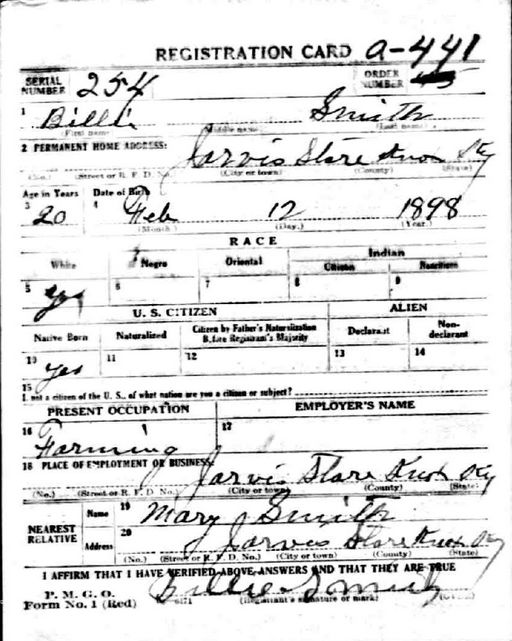 REGISTRATION CARD A-441
SERIAL NUMBER 254 ORDER NUMBER
1 Billie Smith
(First name) (Middle name) (Last name)
2 PERMANENT HOME ADDRESS:
Jarvis Store Knox Ky
(No.) (Street or R. F. D. No.) (City or town) (County) (State)
Age in Years Date of Birth
3 20 4 Feb 12 1898
(Month.) (Day.) (Year.)
RACE
White Negro Oriental Indian
Citizen Noncitizen
5 Yes 6 7 8 9
U. S. CITIZEN ALIEN
Native Born Naturalized Citizen by Father's Naturalization Before Registrant's Majority Declarant Non-declarant
10 Yes 11 12 13 14
15
If not a citizen of the U. S., of what nation are you a citizen or subject?
PRESENT OCCUPATION EMPLOYER'S NAME
16 Farming 17
18 PLACE OF EMPLOYMENT OR BUSINESS:
Jarvis Store Knox Ky
(No.) (Street or R. F. D. No.) (City or town) (County) (State)
NEAREST RELATIVE
Name 19 Mary Smith
Address 20 Jarvis Store Knox Ky
(No.) (Street or R. F. D. No.) (City or town) (County) (State)
I AFFIRM THAT I HAVE VERIFIED ABOVE ANSWERS AND THAT THEY ARE TRUE
P. M. G. O.
Form No. 1 (Red) Billie Smith
(Registrant's signature or mark)